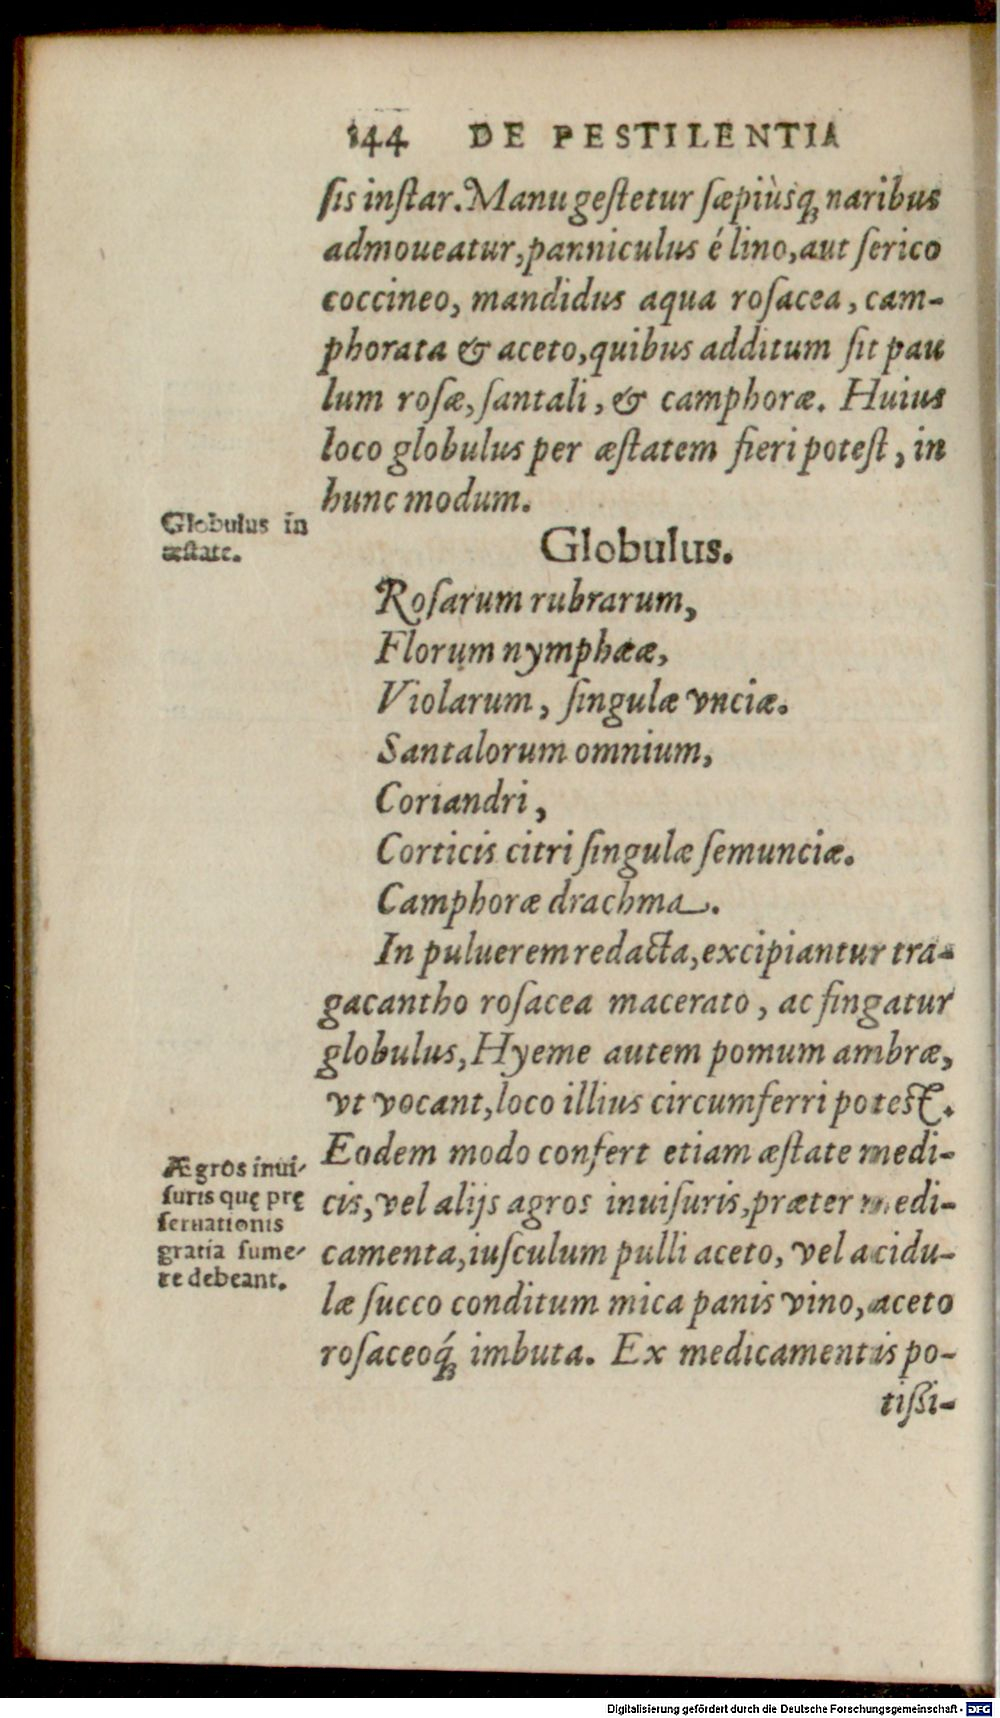 144 DE PESTILENTIA
ſis inſtar. Manu geſtetur ſæpiùsq; naribus
admoueatur, panniculus é lino, aut ſerico
coccineo, mandidus aqua roſacea, cam-
phorata & aceto, quibus additum ſit pau
lum roſæ, ſantali, & camphoræ. Huius
loco globulus per æſtatem fieri poteſt, in
hunc modum.
Globulus in
æſtate.
Globulus.
Roſarum rubrarum,
Florum nymphææ,
Violarum, ſingulæ vnciæ.
Santalorum omnium,
Coriandri,
Corticis citri ſingulæ ſemunciæ.
Camphoræ drachma.
In puluerem redacta, excipiantur tra-
gacantho roſacea macerato, ac fingatur
globulus, Hyeme autem pomum ambræ,
vt vocant, loco illius circumferri poteſt.
Eodem modo confert etiam æſtate medi-
cis, vel alijs agros inuiſuris, præter medi-
camenta, iuſculum pulli aceto, vel acidu-
læ ſucco conditum mica panis vino, aceto
roſaceoq́; imbuta. Ex medicamentis po-
tißi-
Ægros inui-
ſuris quę prę
ſeruationis
gratia ſume-
re debeant.
Digitalisierung gefördert durch die Deutsche Forschungsgemeinschaft - DFG